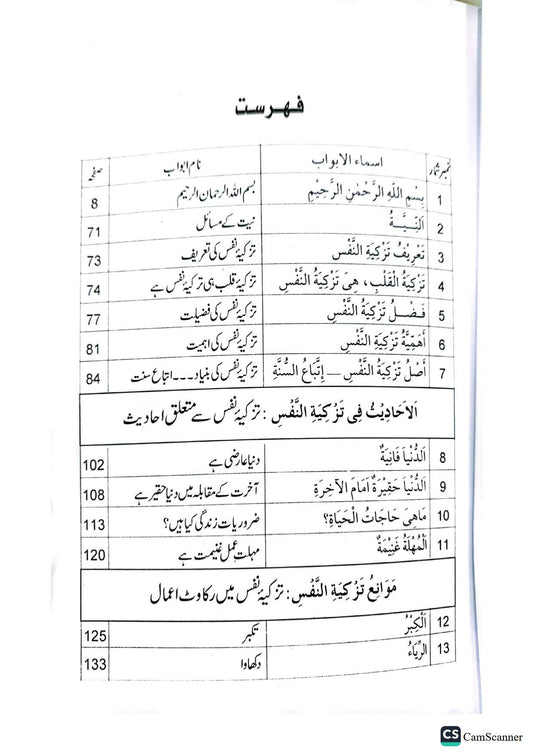 فہرست
نمبر شمار اسماء الابواب نام ابواب صفحہ
1 بِسْمِ اللهِ الرَّحْمٰنِ الرَّحِيْمِ بسم اللہ الرحمان الرحیم 8
2 اَلنِّــيَّــةُ نیت کے مسائل 71
3 تَعْرِيْفُ تَزْكِيَةِ النَّفْسِ تزکیۂ نفس کی تعریف 73
4 تَزْكِيَةُ الْقَلْبِ، هِيَ تَزْكِيَةُ النَّفْسِ تزکیۂ قلب ہی تزکیۂ نفس ہے 74
5 فَضْــلُ تَزْكِيَةِ النَّفْسِ تزکیۂ نفس کی فضیلت 77
6 أَهَمِّيَّةُ تَزْكِيَةِ النَّفْسِ تزکیۂ نفس کی اہمیت 81
7 أَصْلُ تَزْكِيَةِ النَّفْسِ — إِتِّبَاعُ السُّنَّةِ تزکیۂ نفس کی بنیاد۔۔۔اتباع سنت 84
اَلْاَحَادِيْثُ فِى تَزْكِيَةِ النَّفْسِ : تزکیۂ نفس سے متعلق احادیث
8 اَلدُّنْيَا فَانِيَةٌ دنیا عارضی ہے 102
9 اَلدُّنْيَا حَقِيْرَةٌ اَمَامَ الْآخِرَةِ آخرت کے مقابلہ میں دنیا حقیر ہے 108
10 مَاهِيَ حَاجَاتُ الْحَيَاةِ؟ ضروریات زندگی کیا ہیں؟ 113
11 اَلْمُهْلَةُ غَنِيْمَةٌ مہلت عمل غنیمت ہے 120
مَوَانِعُ تَزْكِيَةِ النَّفْسِ : تزکیۂ نفس میں رکاوٹ اعمال
12 اَلْكِبْرُ تکبر 125
13 الرِّيَاءُ دکھاوا 133
CS CamScanner